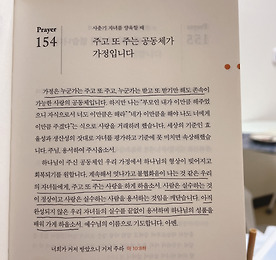 Prayer
154
사춘기 자녀를 양육할 때
주고 또 주는 공동체가
가정입니다
가정은 누군가는 주고 또 주고, 누군가는 받고 또 받기만 해도 존속이
가능한 사랑의 공동체입니다. 하지만 나는 "부모인 내가 이만큼 하주었
으니 자식으로서 너도 이만큼은 해라" "내가 이만큼을 해야 너도 나에게
이만큼 주겠다"는 식으로 사랑을 거래하려 했습니다. 세상의 기준인 효
율성과 생산성의 잣대로 자녀를 평가하고 기준에 못 미치면 속상해했습
니다. 주님, 용서하여 주시옵소서.
하나님이 주신 공동체인 우리 가정에서 하나님의 형상이 빚어지고
회복되기를 원합니다. 계속해서 엇나가고 불협화음이 나는 것 같은 우리
의 자녀들에게, 주고 또 주는 사랑을 하게 하옵소서. 사람은 실수하는 것
이 정상이고 사랑은 실수하는 사람을 용서하는 것임을 깨닫습니다. 아직
완성되지 않은 우리 자녀들의 실수를 끝없이 용서하며 하나님의 성품을
배워 가게 하옵소서. 예수님의 이름으로 기도합니다. 아멘.
너희가 거저 받았으니 거저 주라 마 10:8하